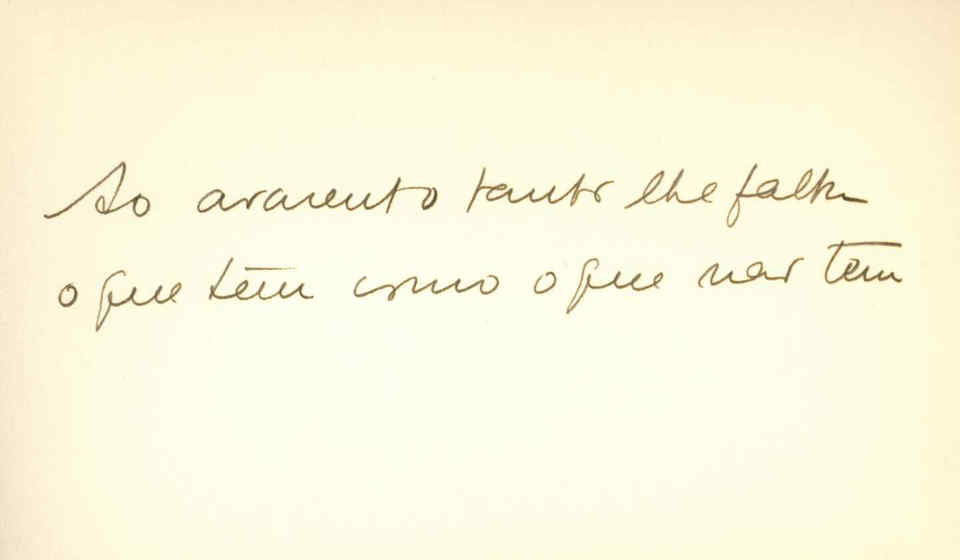 Ao avarento tanto lhe falta
o que tem como o que não tem